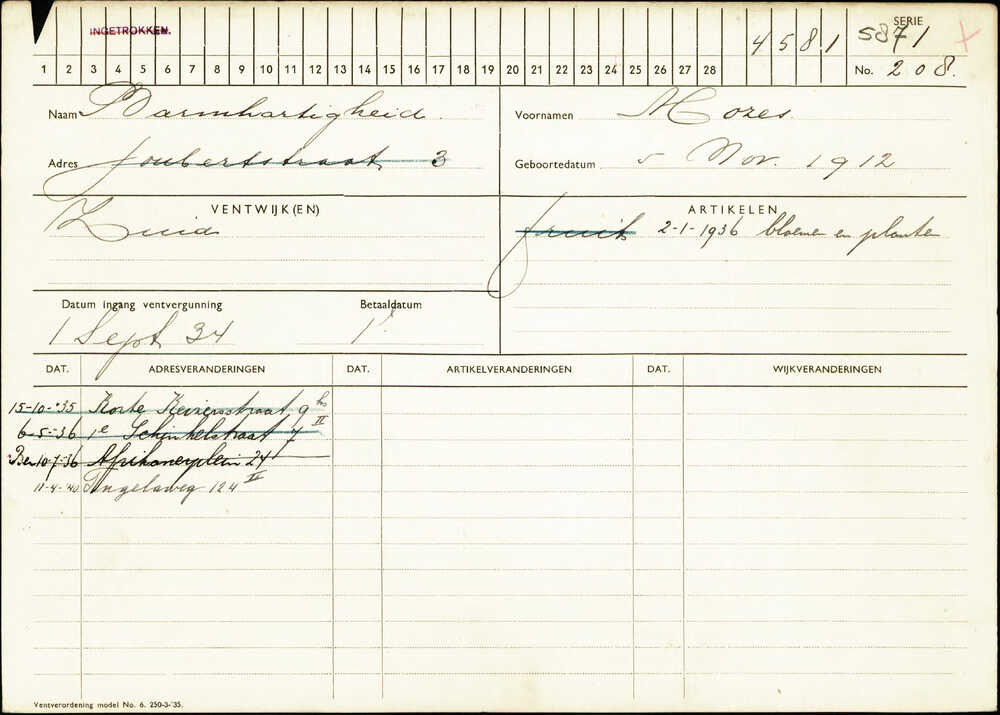 INGETROKKEN.
SERIE
4581 5871
1 2 3 4 5 6 7 8 9 10 11 12 13 14 15 16 17 18 19 20 21 22 23 24 25 26 27 28 No. 208.
Naam Barmhartigheid. Voornamen Mozes.
Adres Joubertstraat 3 Geboortedatum 5 Nov. 1912
VENTWIJK(EN) ARTIKELEN
Zuid fruit 2-1-1936 bloemen en planten
Datum ingang ventvergunning Betaaldatum
1 Sept 34 1
DAT. ADRESVERANDERINGEN DAT. ARTIKELVERANDERINGEN DAT. WIJKVERANDERINGEN
15-10-'35 Korte Keizersstraat 9 hs
6-5-'36 1e Schinkelstraat 7 II
10-7-'36 Afrikanerplein 24
11-4-'40 Tugelaweg 124
Ventverordening model No. 6. 250-3-'35.